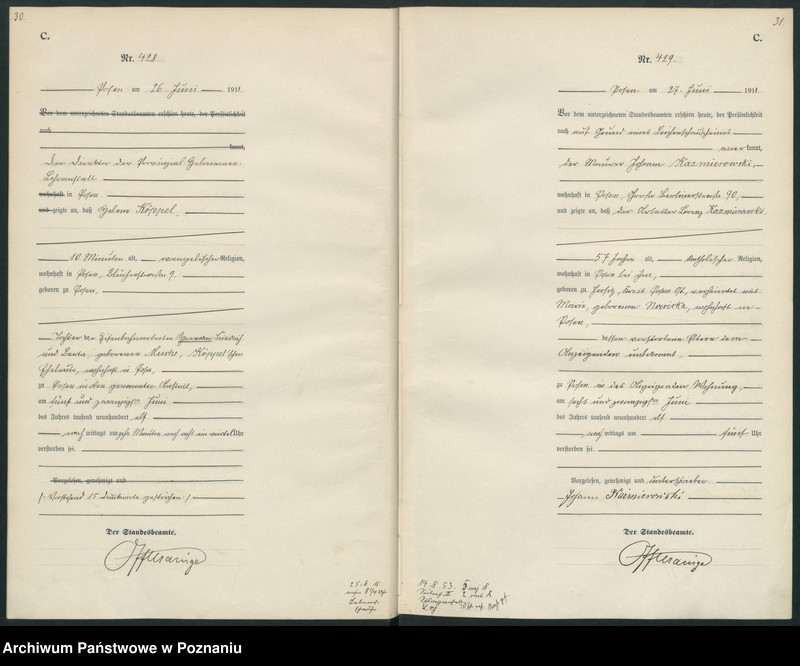 30.
C.
Nr. 428
Posen am 26. Juni 1911
Vor dem unterzeichneten Standesbeamten erschien heute, der Persönlichkeit
nach
kannt,
Der Direktor der Provinzial Hebammen-
Lehranstalt
wohnhaft in Posen
und zeigte an, daß Helene Köppel,
10 Minuten alt, evangelischer Religion,
wohnhaft in Posen, Blücherstraße 9,
geboren zu Posen,
Tochter des Eisenbahnarbeiters Friedrich
und Berta, geborenen Köppel'schen
Eheleute, wohnhaft in Posen,
zu Posen in der genannten Anstalt,
am fünf und zwanzigsten Juni
des Jahres tausend neunhundert elf
nachmittags um zehn Minuten nach acht ein viertel Uhr
verstorben sei.
Vorgelesen, genehmigt und
/: Vorstehend 15 Druckworte gestrichen :/
Der Standesbeamte.
25. 6. 11
31
C.
Nr. 429.
Posen am 27. Juni 1911
Vor dem unterzeichneten Standesbeamten erschien heute, der Persönlichkeit
nach auf Grund eines Leichenschauscheines
anerkannt,
der Maurer Johann Kazmierowski,
wohnhaft in Posen, Große Berlinerstraße 90,
und zeigte an, daß der Arbeiter Lorenz Kazmierowski,
57 Jahre alt, katholischer Religion,
wohnhaft in Posen bei ihm,
geboren zu Kreis Posen Ost, verheiratet mit
Marie, geborenen Nowicka, wohnhaft in
Posen,
dessen verstorbene Eltern dem
Anzeigenden unbekannt,
zu Posen in des Anzeigenden Wohnung,
am sechs und zwanzigsten Juni
des Jahres tausend neunhundert elf
nachmittags um fünf Uhr
verstorben sei.
Vorgelesen, genehmigt und unterschrieben
Johann Kaźmierowski
Der Standesbeamte.
14. 8. 53.
Archiwum Państwowe w Poznaniu